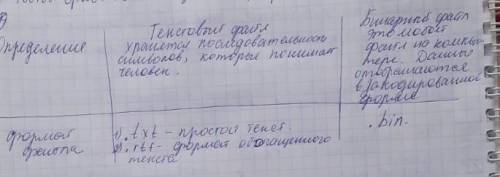 Определение
Текстовый файл
хранится последовательность
символов, которые понимает
человек.
Бинарный файл
это любой
файл на компью
тере. Данные
отображаются
в закодированной
форме
формат
файла
1) .txt - простой текст.
2) .rtf - формат обогащенного
текста
.bin.